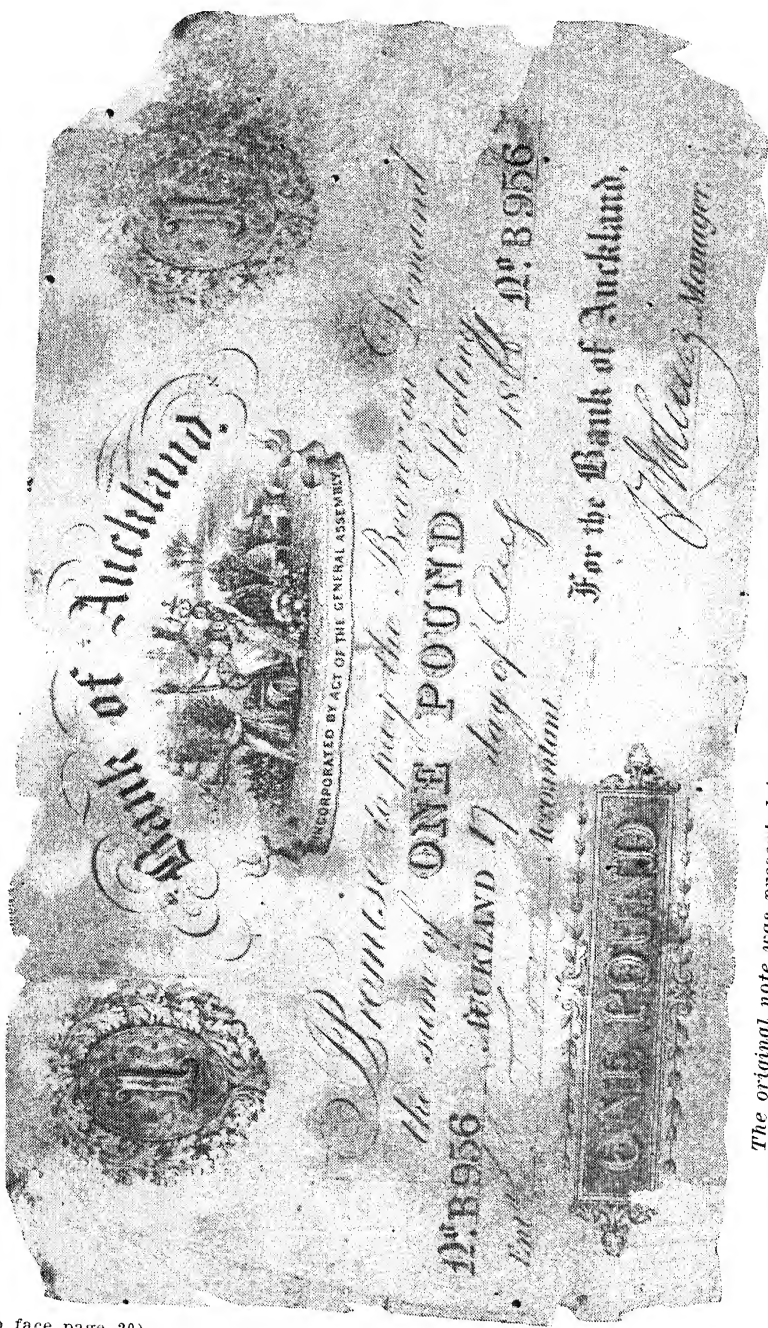 Bank of Auckland.
I
I
INCORPORATED BY ACT OF THE GENERAL ASSEMBLY
Promise to pay the Bearer on Demand
the sum of ONE POUND Sterling
No. B 956 AUCKLAND 17 day of Aug No. B 956
Accountant
For the Bank of Auckland,
Manager
ONE POUND
The original note was
face page